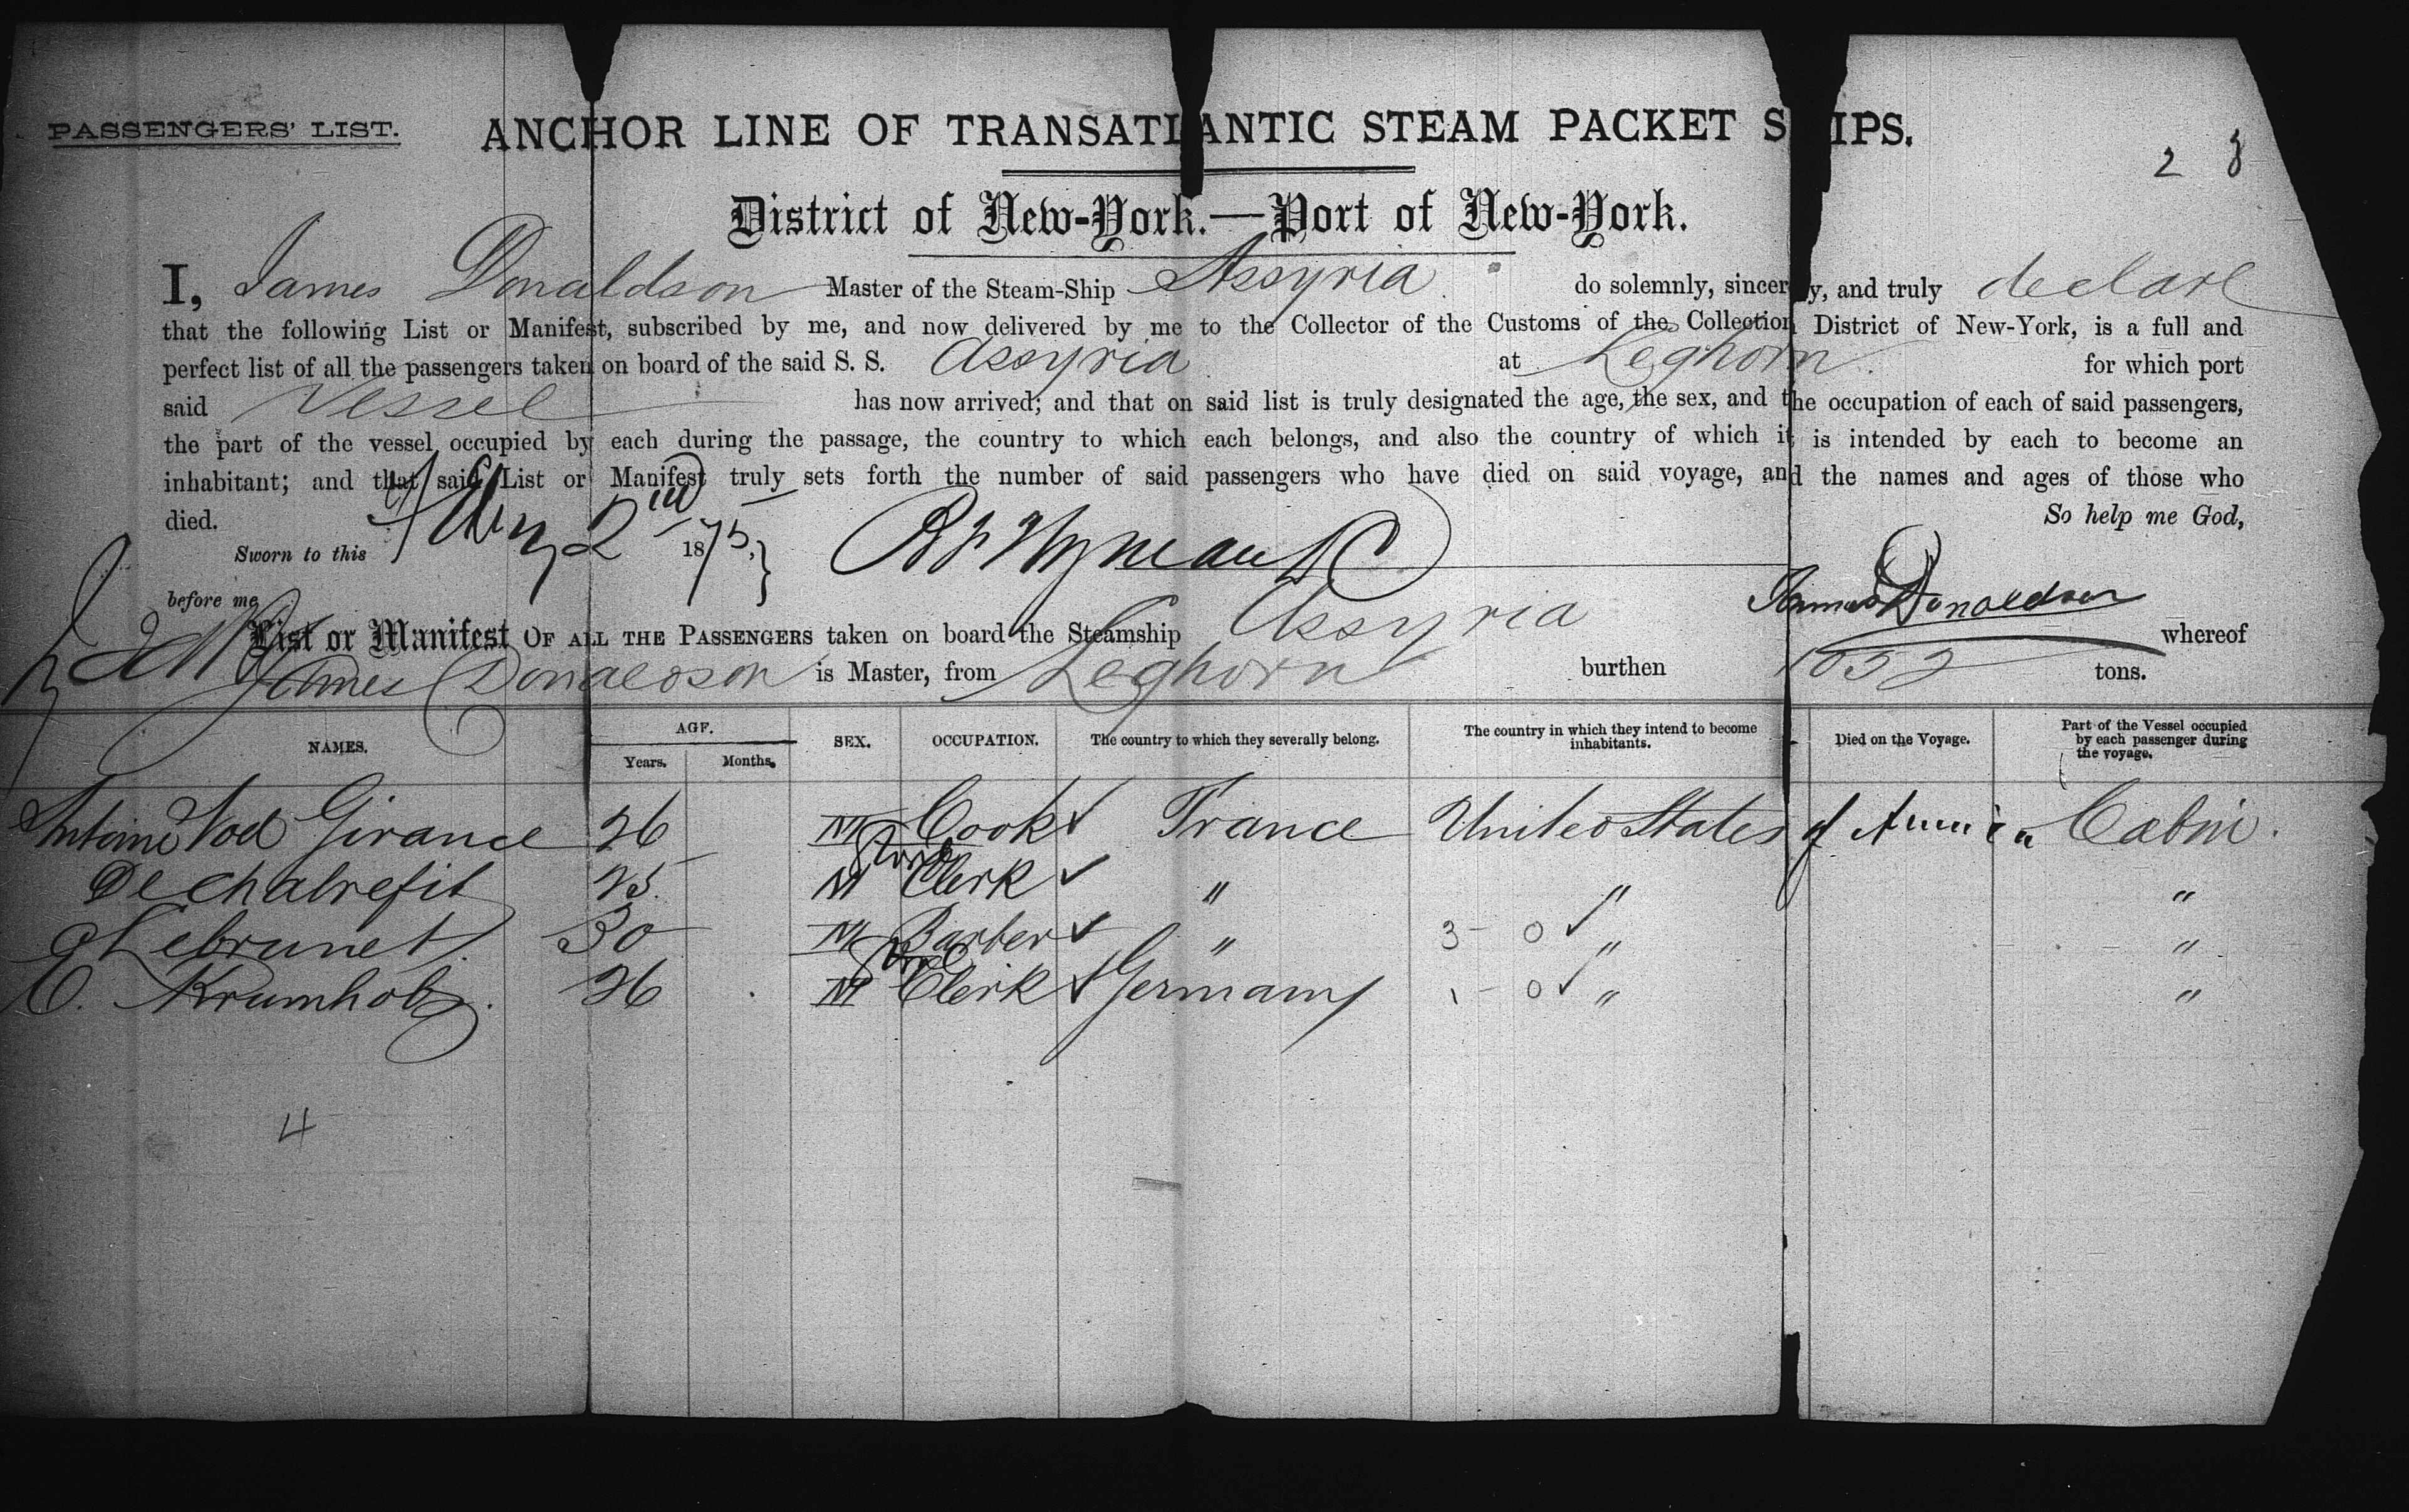 PASSENGERS' LIST.
ANCHOR LINE OF TRANSATLANTIC STEAM PACKET SHIPS.
2 8
District of New-York.—Port of New-York.
I, James Donaldson Master of the Steam-Ship Assyria do solemnly, sincerely, and truly declare
that the following List or Manifest, subscribed by me, and now delivered by me to the Collector of the Customs of the Collection District of New-York, is a full and
perfect list of all the passengers taken on board of the said S. S. Assyria at Leghorn for which port
said Vessel has now arrived; and that on said list is truly designated the age, the sex, and the occupation of each of said passengers,
the part of the vessel occupied by each during the passage, the country to which each belongs, and also the country of which it is intended by each to become an
inhabitant; and that said List or Manifest truly sets forth the number of said passengers who have died on said voyage, and the names and ages of those who
died. So help me God,
Sworn to this 2nd 1875,
before me
James Donaldson
List or Manifest OF ALL THE PASSENGERS taken on board the Steamship Assyria whereof
James Donaldson is Master, from Leghorn burthen tons.
NAMES. AGE. SEX. OCCUPATION. The country to which they severally belong. The country in which they intend to become inhabitants. Died on the Voyage. Part of the Vessel occupied by each passenger during the voyage.
Years. Months.
Antoine Girance 26 M Cook France United States of America Cabin.
25 M Clerk " " "
Lebrunet 30 M Barber " 3 - 0 " "
C. Krumholz. 26 M Clerk Germany 1 - 0 " "
4